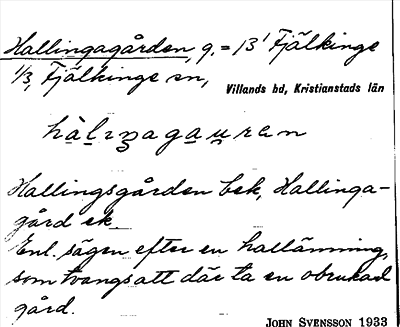 Hallingagården, g. = 13¹ Fjälkinge
1/3, Fjälkinge sn,
Villands hd, Kristianstads län
Hallingsgården bek, Hallinga-
gård ek
Enl. sägen efter en hallänning,
som tvangs att där ta en obrukad
gård.
JOHN SVENSSON 1933